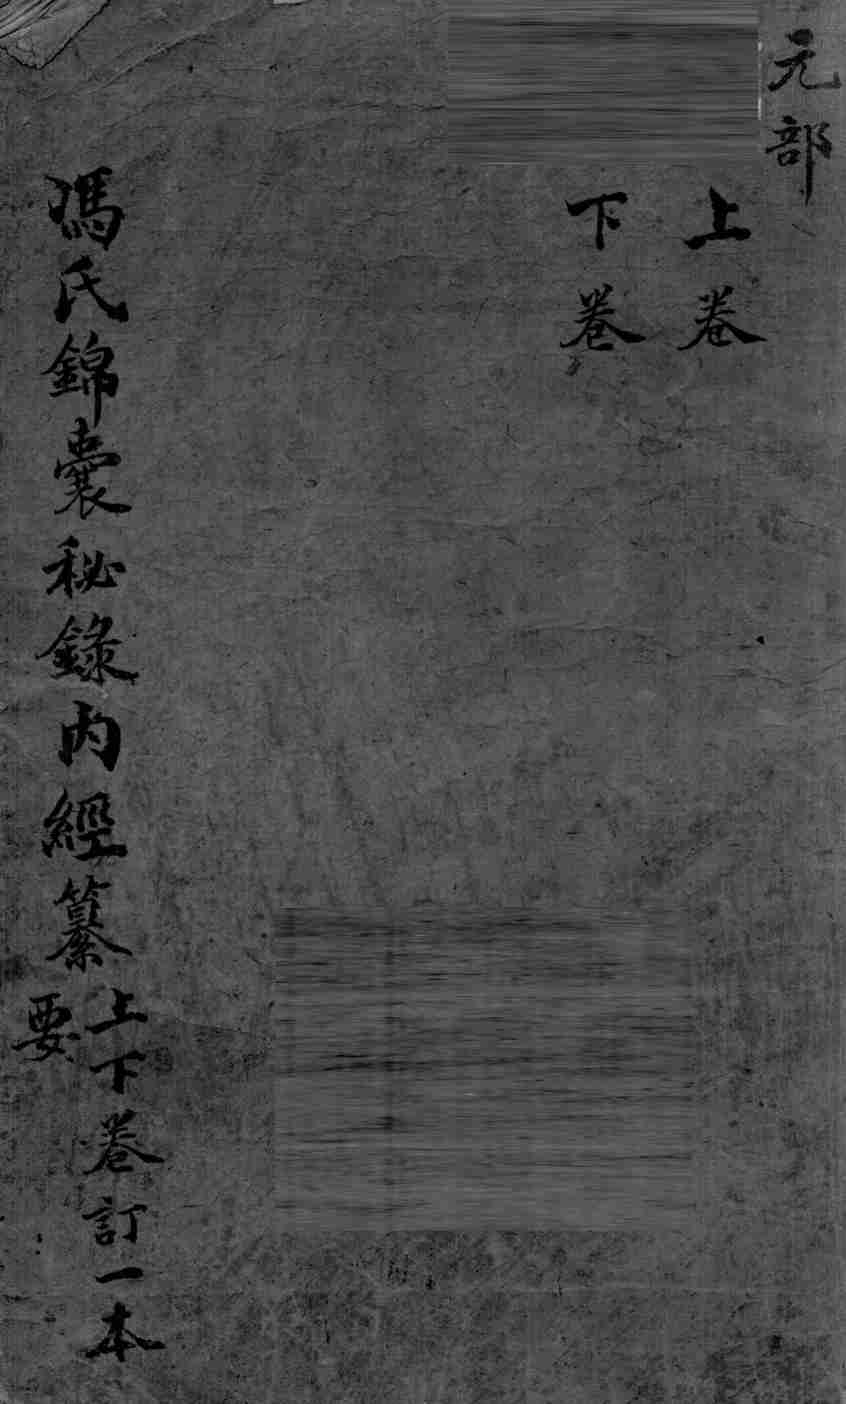 元部
上卷
下卷
馮氏錦囊秘錄内經纂要
上下卷訂一本